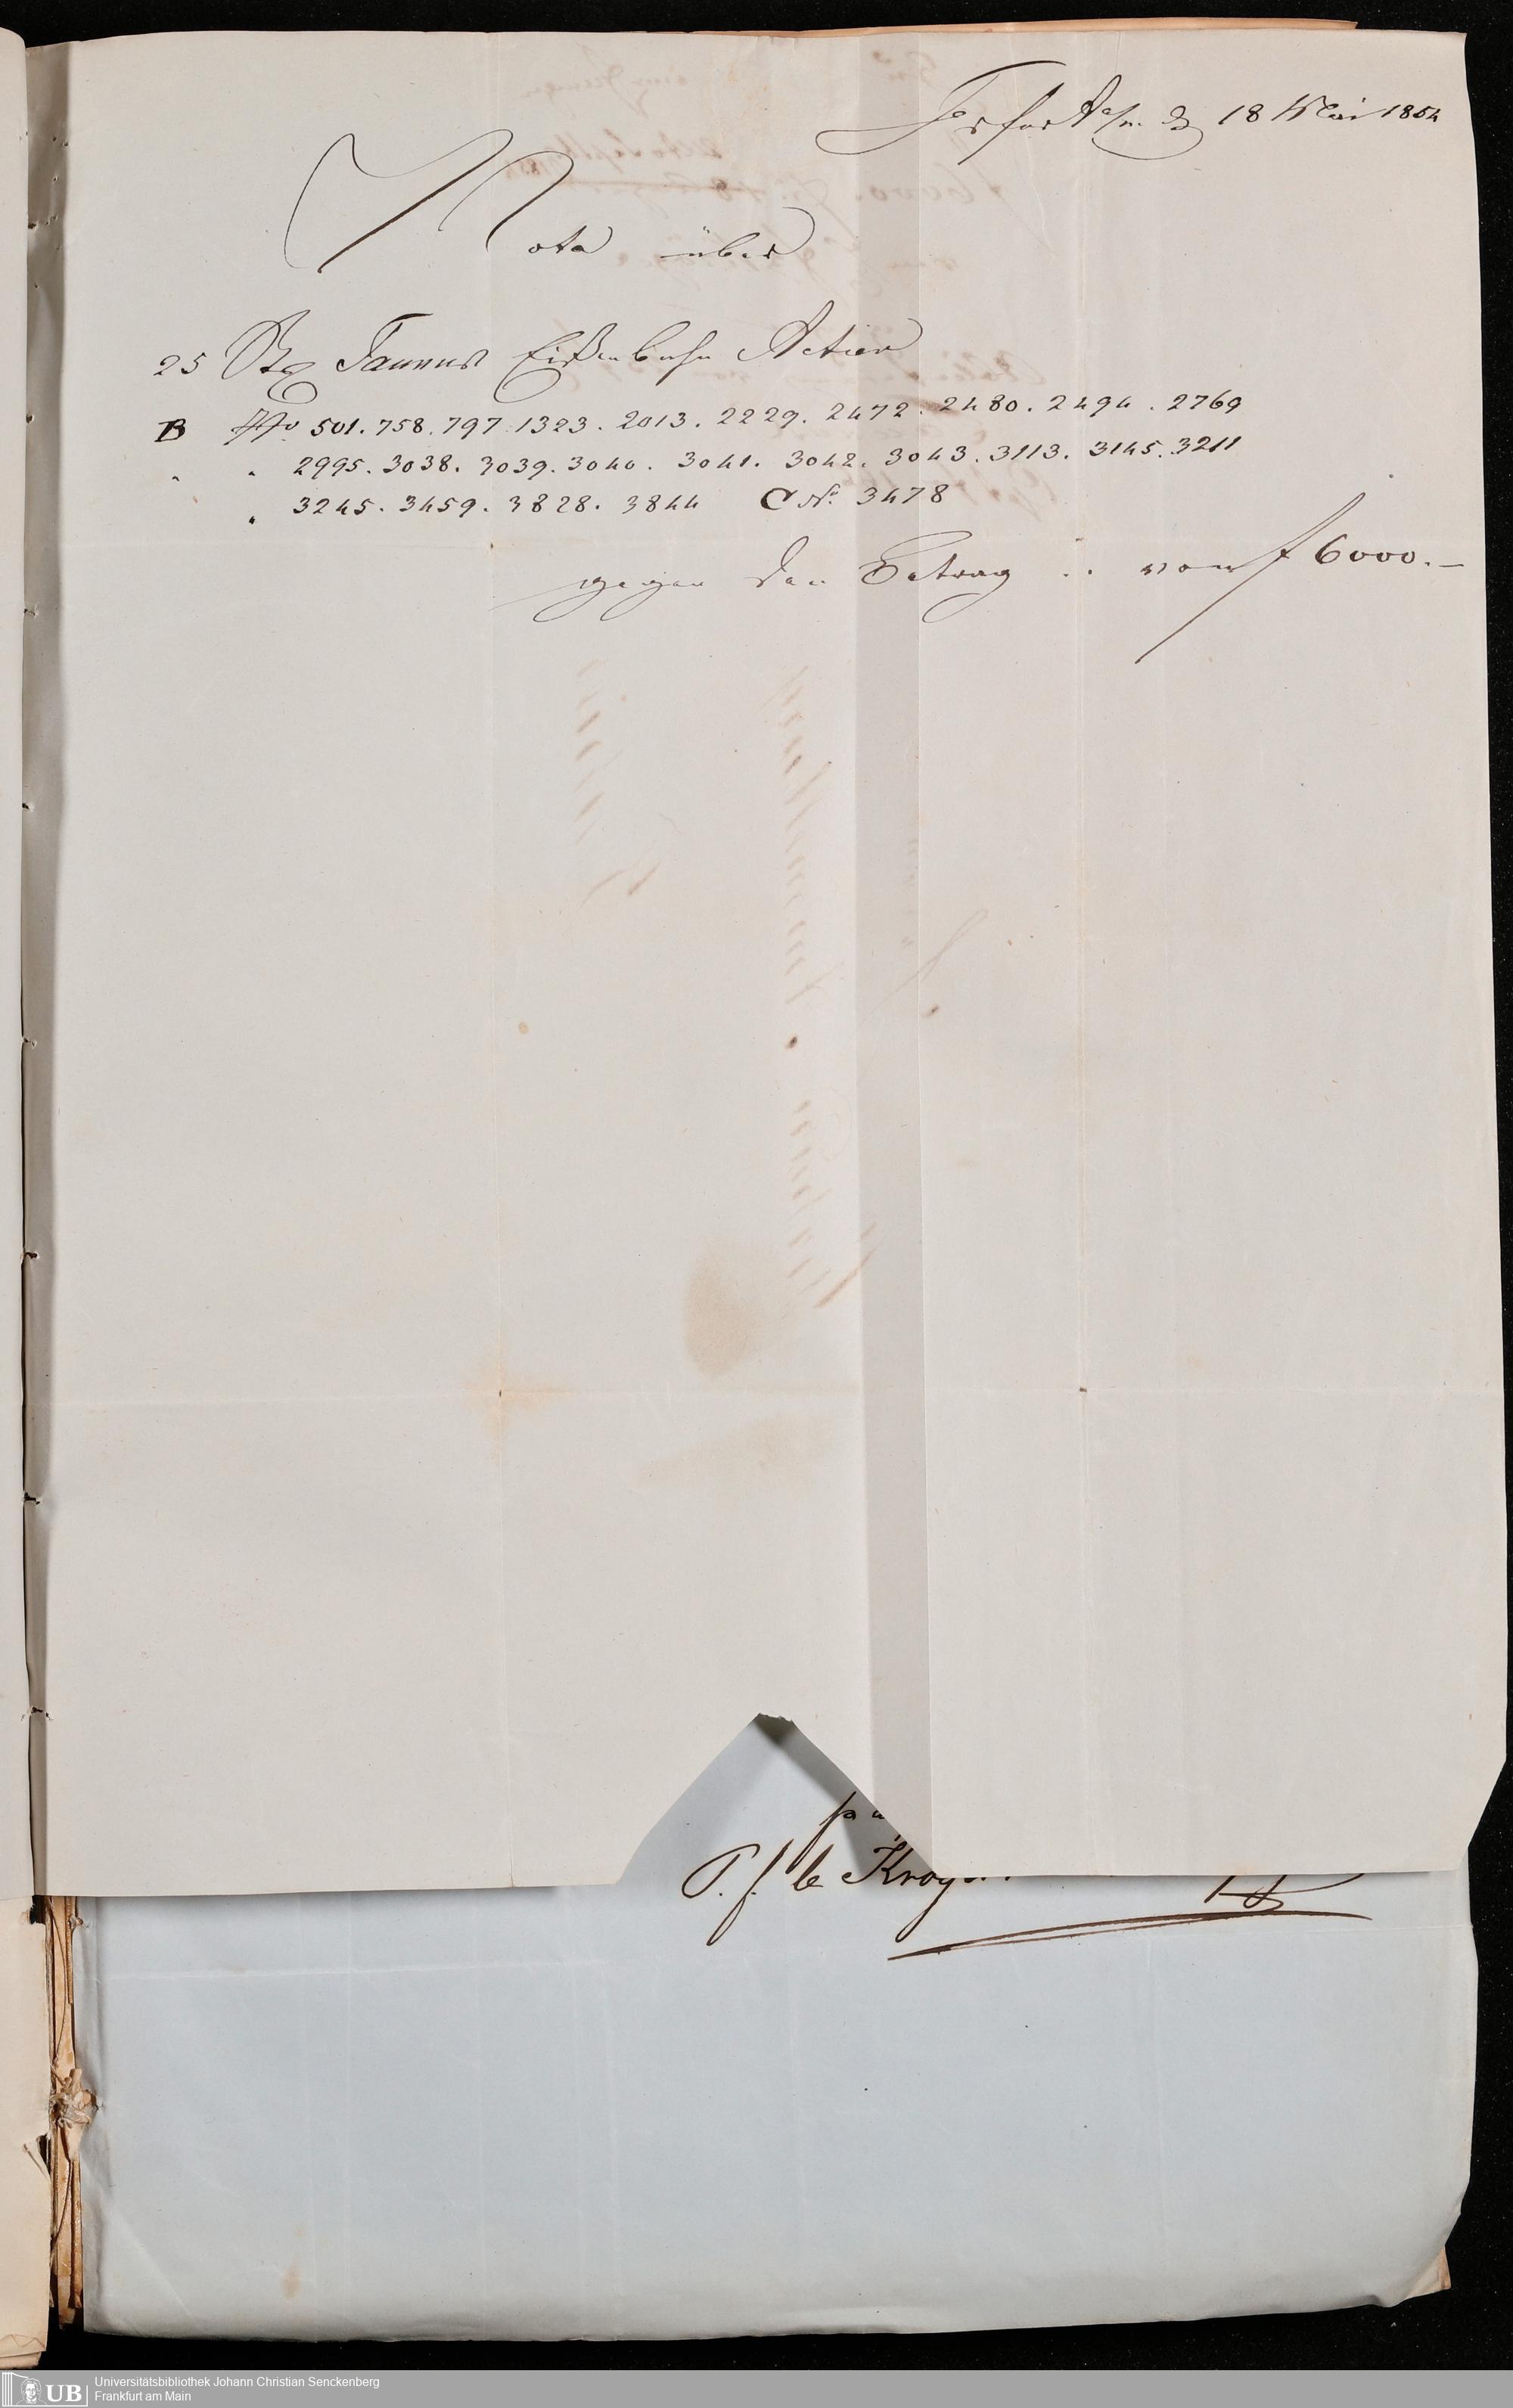 Frkfurt a/m d 18 Mai 1854
Nota über
25 Stq Taunus Eißenbahn Actien
B No 501. 758. 797. 1323. 2013. 2229. 2472. 2480. 2494. 2769
" " 2995. 3038. 3039. 3040. 3041. 3042. 3043. 3113. 3145. 3211
" 3245. 3459. 3828. 3844 C No. 3478
gegen den Betrag .. von f 6000.—
P. f. le
UB
Universitätsbibliothek Johann Christian Senckenberg
Frankfurt am Main